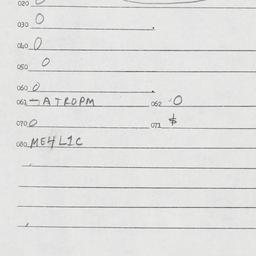 020 0
030 0
040 0
050 0
060 0
061 - ATROPM 062 0
070 0 071 $
080 ME4L1C